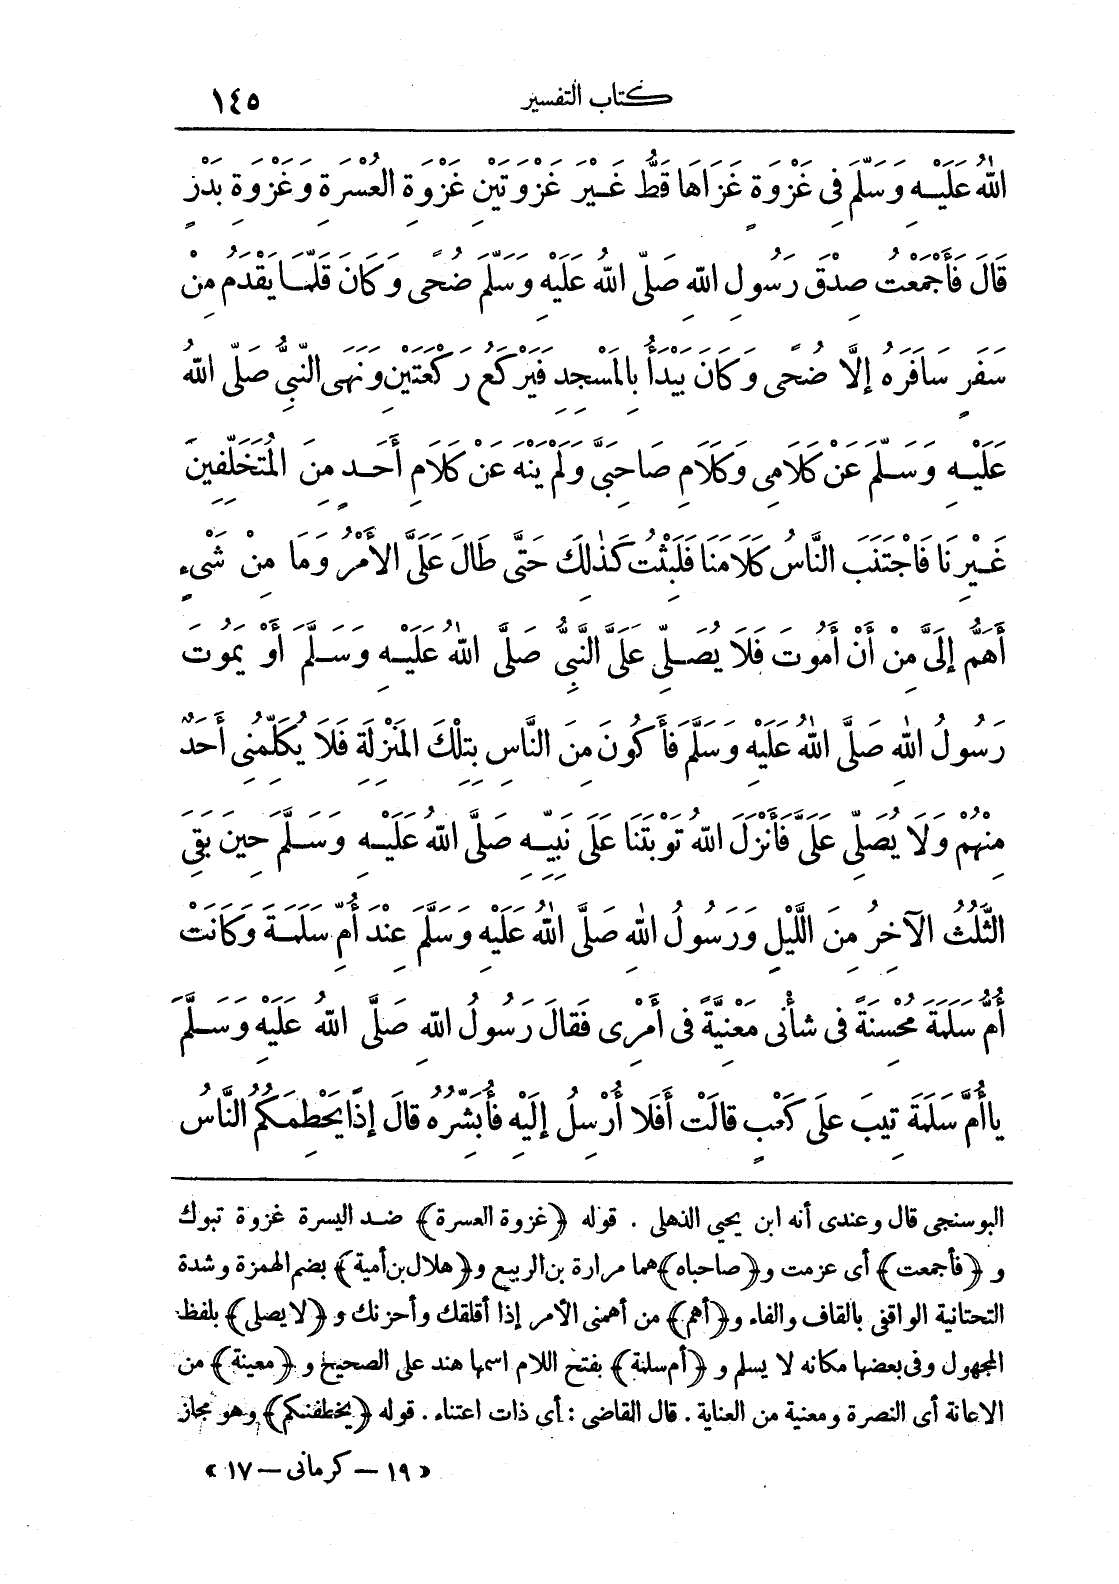 كتاب التفسير ١٤٥
اللهُ عَلَيْهِ وَسَلَّمَ فِى غَزْوَةٍ غَزَاهَا قَطُّ غَيْرَ غَزْوَتَيْنِ غَزْوَةِ العُسْرَةِ وغَزْوَةِ بَدْرٍ
قَالَ فَأَجْمَعْتُ صِدْقَ رَسُولِ اللهِ صَلَّى اللهُ عَلَيْهِ وَسَلَّمَ ضُحًى وَكَانَ قَلَّمَا يَقْدَمُ مِنْ
سَفَرٍ سَافَرَهُ إلَّا ضُحًى وَكَانَ يَبْدَأُ بِالمَسْجِدِ فَيَرْكَعُ رَكْعَتَيْنِ ونَهَى النَّبِىُّ صَلَّى اللهُ
عَلَيْهِ وَسَلَّمَ عَنْ كَلَامِى وَكَلَامِ صَاحِبَىَّ وَلَمْ يَنْهَ عَنْ كَلَامِ أَحَدٍ مِنَ المُتَخَلِّفِينَ
غَيْرِنَا فَاجْتَنَبَ النَّاسُ كَلَامَنَا فَلَبِثْتُ كَذٰلِكَ حَتَّى طَالَ عَلَىَّ الأَمْرُ وَمَا مِنْ شَىْءٍ
أَهَمُّ إلَىَّ مِنْ أَنْ أَمُوتَ فَلَا يُصَلِّى عَلَىَّ النَّبِىُّ صَلَّى اللهُ عَلَيْهِ وَسَلَّمَ أَوْ يَمُوتَ
رَسُولُ اللهِ صَلَّى اللهُ عَلَيْهِ وَسَلَّمَ فَأَكُونَ مِنَ النَّاسِ بِتِلْكَ المَنْزِلَةِ فَلَا يُكَلِّمُنِى أَحَدٌ
مِنْهُمْ وَلَا يُصَلِّى عَلَىَّ فَأَنْزَلَ اللهُ تَوْبَتَنَا عَلَى نَبِيِّهِ صَلَّى اللهُ عَلَيْهِ وَسَلَّمَ حِينَ بَقِىَ
الثُّلُثُ الآخِرُ مِنَ اللَّيْلِ وَرَسُولُ اللهِ صَلَّى اللهُ عَلَيْهِ وَسَلَّمَ عِنْدَ أُمِّ سَلَمَةَ وَكَانَتْ
أُمُّ سَلَمَةَ مُحْسِنَةً فى شَأْنى مَعْنِيَّةً فى أَمْرِى فَقَالَ رَسُولُ اللهِ صَلَّى اللهُ عَلَيْهِ وَسَلَّمَ
ياأُمَّ سَلَمَةَ تِيبَ عَلَى كَعْبٍ قالَتْ أَفَلا أُرْسِلُ إلَيْهِ فَأُبَشِّرُهُ قَالَ إذًا يَحْطِمَكُمُ النَّاسُ
البوسنجى قال وعندى أنه ابن يحيى الذهلى . قوله ﴿غزوة العسرة﴾ ضد اليسرة غزوة تبوك
و ﴿فأجمعت﴾ أى عزمت و ﴿صاحباه﴾ هما مرارة بن الربيع و ﴿هلال بن أمية﴾ بضم الهمزة وشدة
التحتانية الواقفى بالقاف والفاء و ﴿أهم﴾ من أهمنى الأمر إذا أقلقك وأحزنك و ﴿لا يصلى﴾ بلفظ
المجهول وفى بعضها مكانه لا يسلم و ﴿أم سلمة﴾ بفتح اللام اسمها هند على الصحيح و ﴿معينة﴾ من
الاعانة أى النصرة ومعنية من العناية . قال القاضى : أى ذات اعتناء . قوله ﴿يخطفنكم﴾ وهو مجاز
« ١٩ – كرمانى – ١٧ »